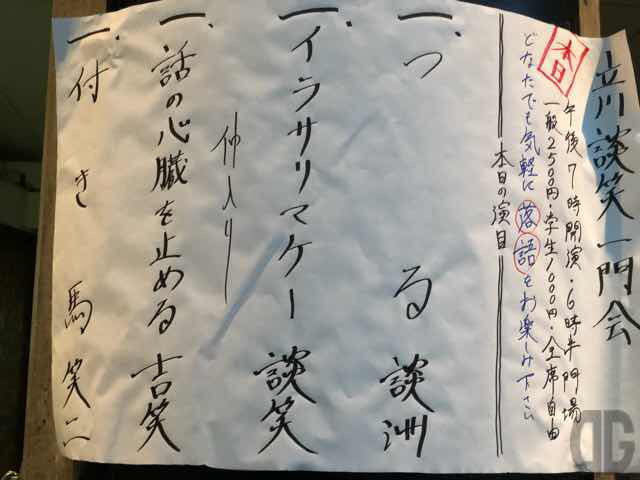 立川談笑一門会
本日
午後7時開演・6時半開場
一般2500円・学生1000円・全席自由
どなたでも気軽に落語をお楽しみ下さい
本日の演目
一、つる 談洲
一、イラサリマケー 談笑
仲入り
一、話の心臓を止める 吉笑
一、付き馬 笑二
DG